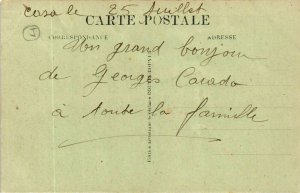 Casa le 25 Juillet
CARTE POSTALE
CORRESPONDANCE ADRESSE
Un grand bonjour
de Georges
à toute la famille